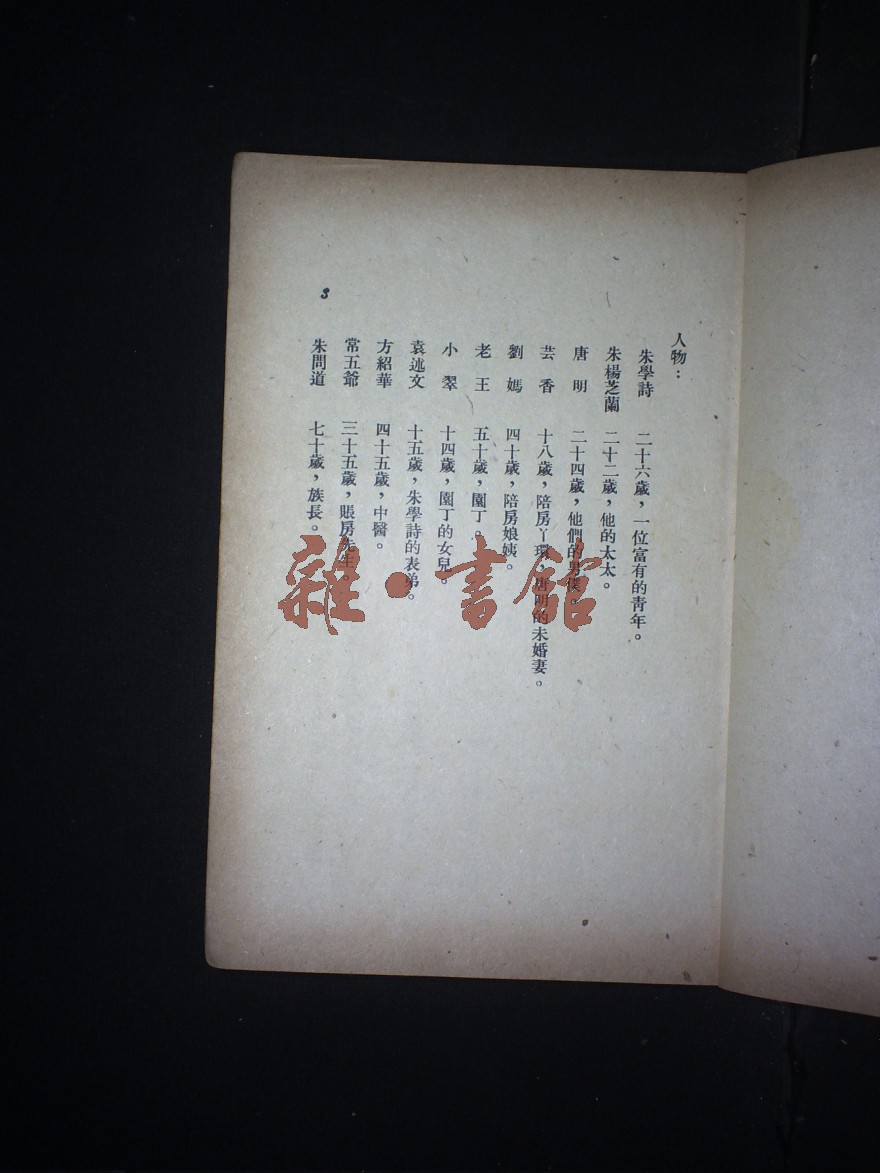 人物：
朱學詩　二十六歲，一位富有的青年。
朱楊芝蘭　二十二歲，他的太太。
唐　明　二十四歲，他們的男僕。
芸　香　十八歲，陪房丫環，唐明的未婚妻。
劉　媽　四十歲，陪房娘姨。
老　王　五十歲，園丁。
小　翠　十四歲，園丁的女兒。
袁述文　十五歲，朱學詩的表弟。
方紹華　四十五歲，中醫。
常五爺　三十五歲，賬房先生。
朱問道　七十歲，族長。
3
雜·書館